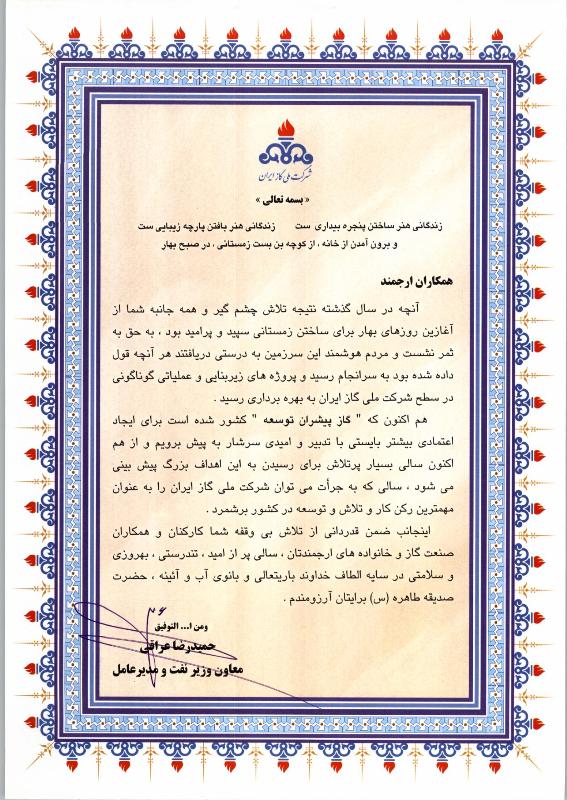 شرکت ملی گاز ایران
« بسمه تعالی »
زندگانی هنر ساختن پنجره بیداری ست زندگانی هنر بافتن پارچه زیبایی ست
و برون آمدن از خانه ، از کوچه بن بست زمستانی ، در صبح بهار
همکاران ارجمند
آنچه در سال گذشته نتیجه تلاش چشم گیر و همه جانبه شما از
آغازین روزهای بهار برای ساختن زمستانی سپید و پرامید بود ، به حق به
ثمر نشست و مردم هوشمند این سرزمین به درستی دریافتند هر آنچه قول
داده شده بود به سرانجام رسید و پروژه های زیربنایی و عملیاتی گوناگونی
در سطح شرکت ملی گاز ایران به بهره برداری رسید .
هم اکنون که " گاز پیشران توسعه " کشور شده است برای ایجاد
اعتمادی بیشتر بایستی با تدبیر و امیدی سرشار به پیش برویم و از هم
اکنون سالی بسیار پرتلاش برای رسیدن به این اهداف بزرگ پیش بینی
می شود ، سالی که به جرأت می توان شرکت ملی گاز ایران را به عنوان
مهمترین رکن کار و تلاش و توسعه در کشور برشمرد .
اینجانب ضمن قدردانی از تلاش بی وقفه شما کارکنان و همکاران
صنعت گاز و خانواده های ارجمندتان ، سالی پر از امید ، تندرستی ، بهروزی
و سلامتی در سایه الطاف خداوند باریتعالی و بانوی آب و آئینه ، حضرت
صدیقه طاهره (س) برایتان آرزومندم .
ومن ا... التوفیق
حمیدرضا عراقی
معاون وزیر نفت و مدیرعامل